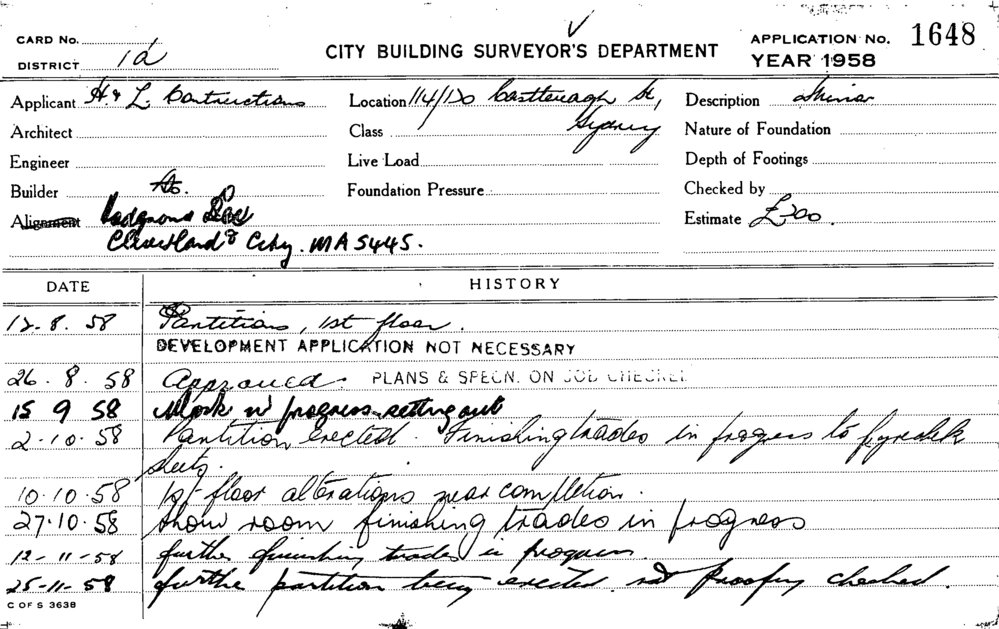 CARD No.
CITY BUILDING SURVEYOR'S DEPARTMENT
APPLICATION No. 1648
DISTRICT 1d
YEAR 1958
Applicant H & L Contructions
Location 114/120 Castlereagh St,
Sydney
Description Minor
Architect
Class
Nature of Foundation
Engineer
Live Load
Depth of Footings
Builder
Foundation Pressure
Checked by
Alignment
Estimate £300.
City. MA5445.
DATE
HISTORY
12.8.58 Partitions, 1st floor.
DEVELOPMENT APPLICATION NOT NECESSARY
26.8.58 Approved. PLANS & SPECN. ON JOB CHECKED
15 9 58 Work in progress setting out
2.10.58 Partition erected. Finishing trades in progress to gyprock
sheets.
10.10.58 1st floor alterations near completion.
27.10.58 Show room finishing trades in progress
12-11-58 further finishing trades in progress.
25-11-58 further partition being erected proofing checked.
C OF S 3638